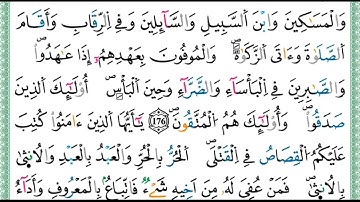 وَالْمَسَٰكِينَ وَابْنَ السَّبِيلِ وَالسَّآئِلِينَ وَفِي الرِّقَابِ وَأَقَامَ
الصَّلَوٰةَ وَءَاتَى الزَّكَوٰةَ وَالْمُوفُونَ بِعَهْدِهِمُۥٓ إِذَا عَٰهَدُوا۟
وَالصَّٰبِرِينَ فِي الْبَأْسَآءِ وَالضَّرَّآءِ وَحِينَ الْبَأْسِ أُو۟لَٰٓئِكَ الَّذِينَ
صَدَقُوا۟ وَأُو۟لَٰٓئِكَ هُمُ الْمُتَّقُونَ 176 يَٰٓأَيُّهَا الَّذِينَ ءَامَنُوا۟ كُتِبَ
عَلَيْكُمُ الْقِصَاصُ فِي الْقَتْلَى الْحُرُّ بِالْحُرِّ وَالْعَبْدُ بِالْعَبْدِ وَالْأُنثَىٰ
بِالْأُنثَىٰ فَمَنْ عُفِيَ لَهُۥ مِنَ اخِيهِ شَيْءٌ فَاتِّبَاعٌۢ بِالْمَعْرُوفِ وَأَدَآءٌ